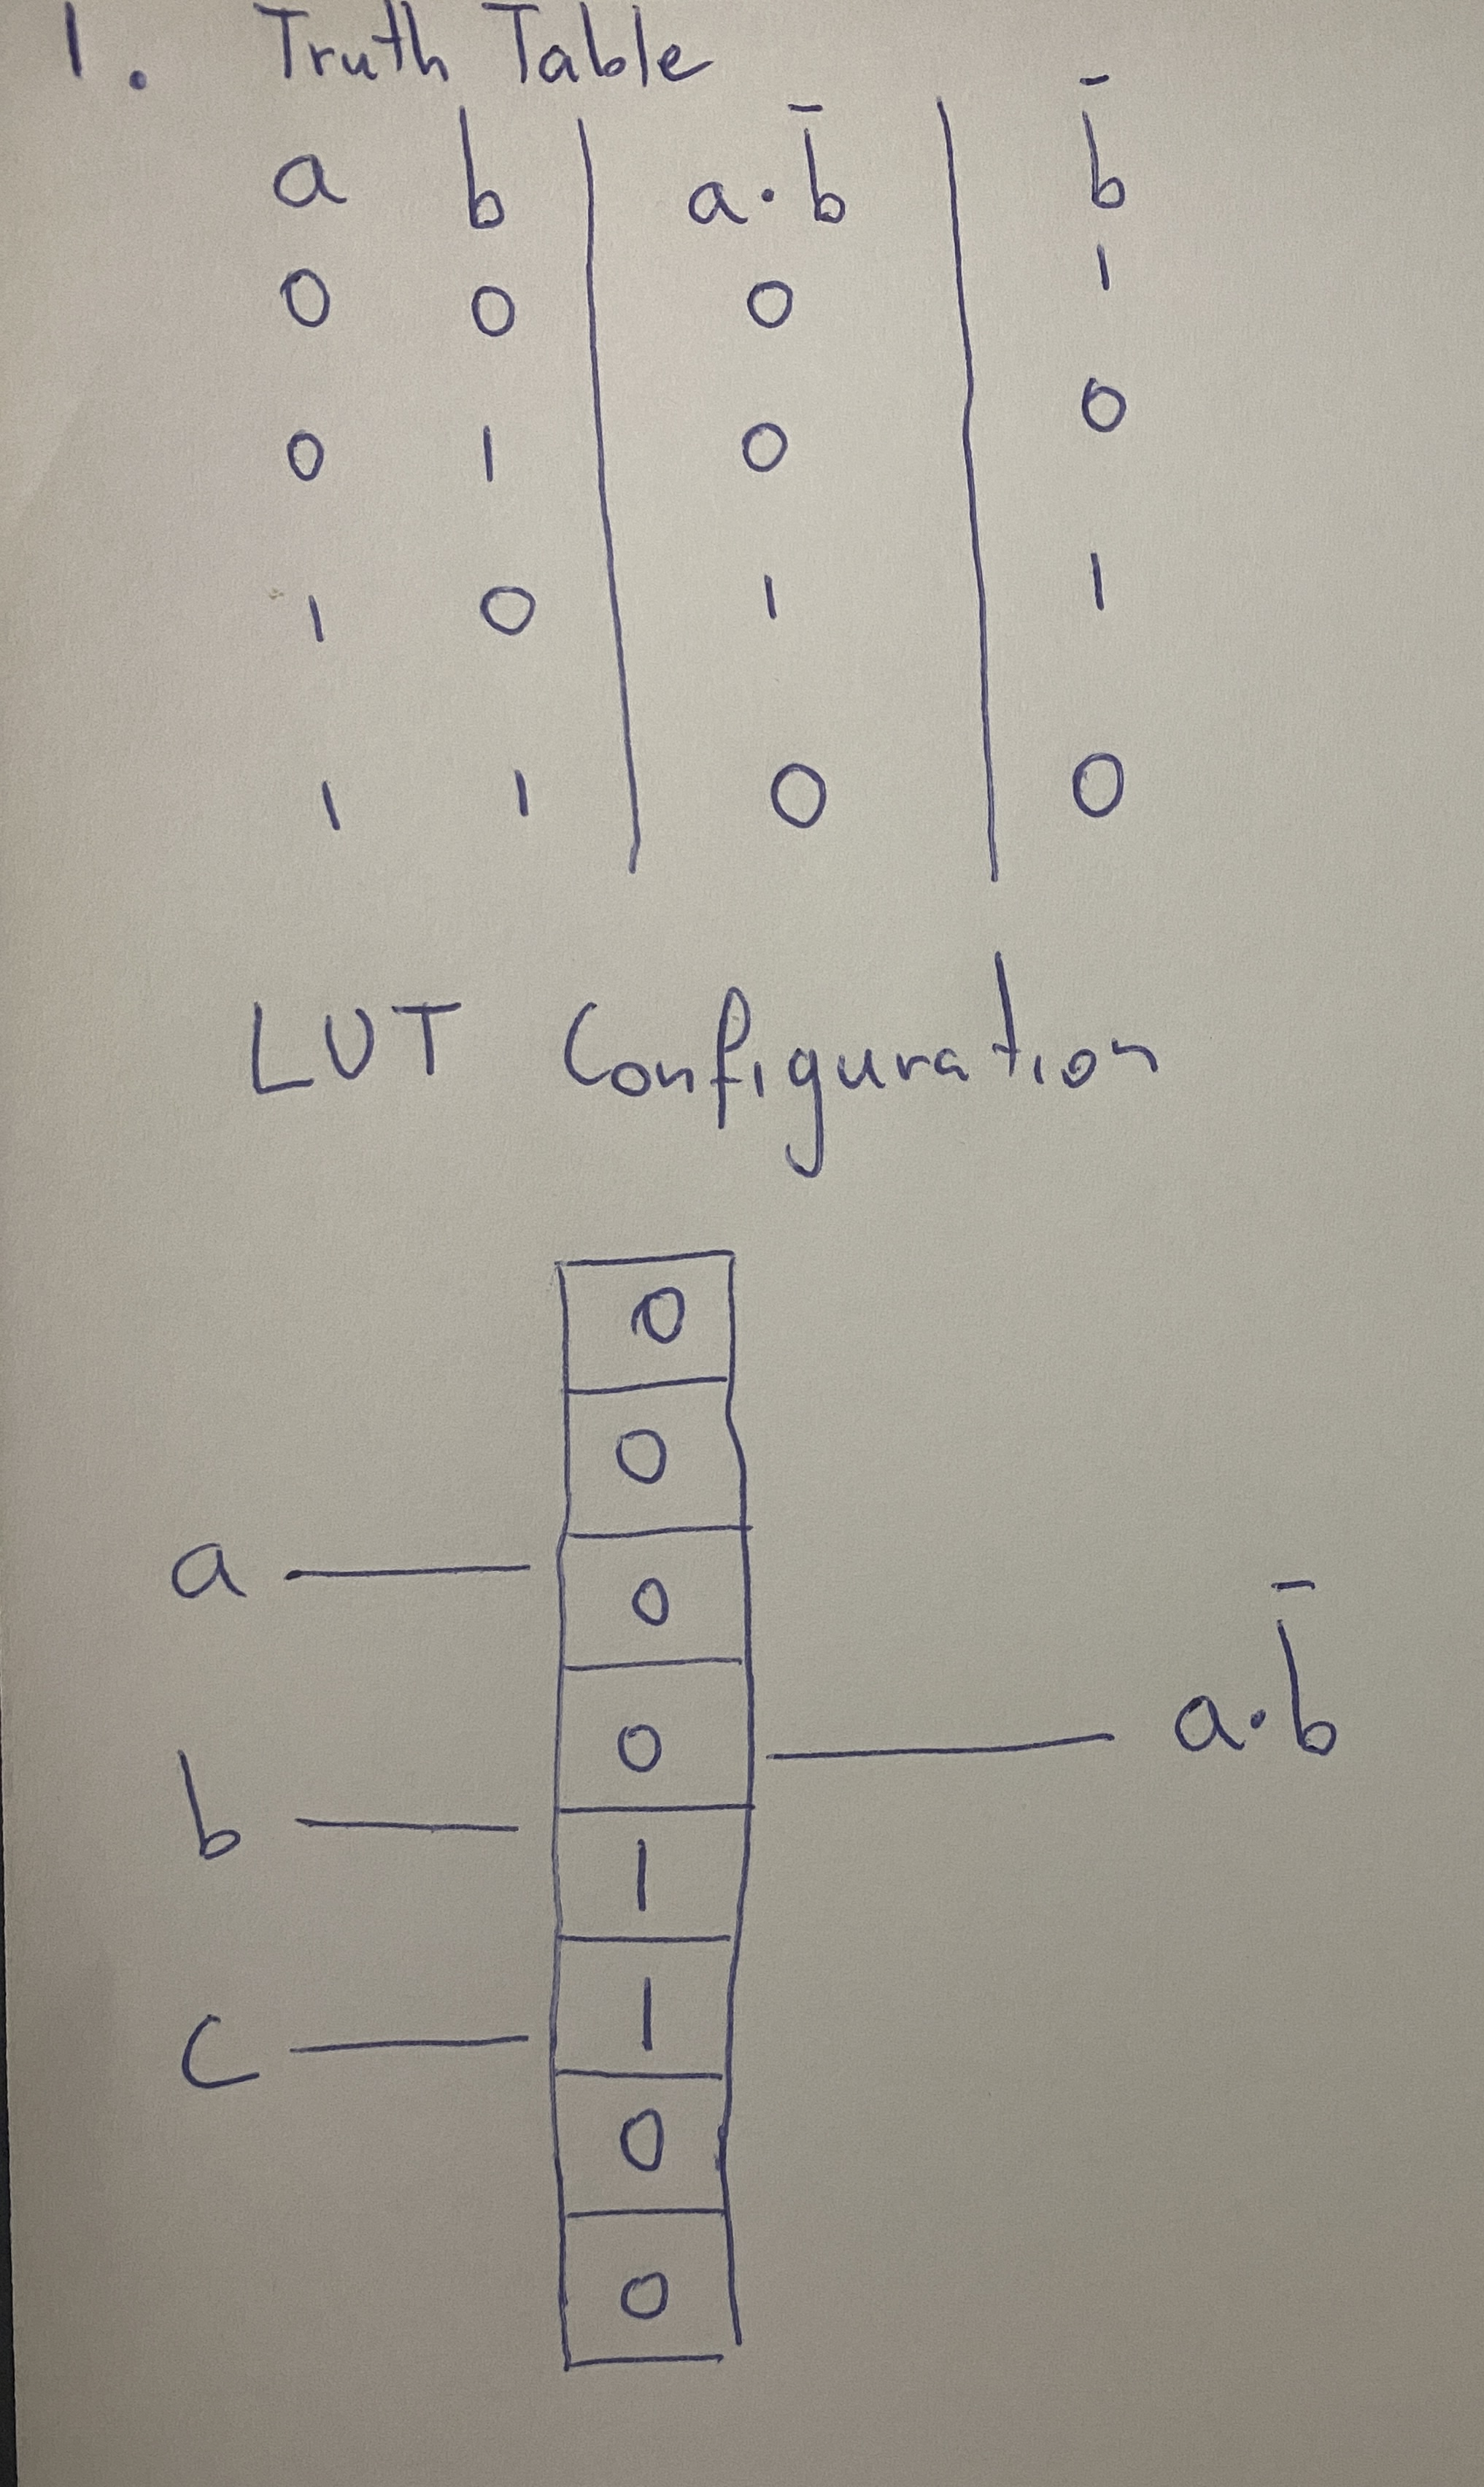 1. Truth Table
a b a·b̄ b̄
0 0 0 1
0 1 0 0
1 0 1 1
1 1 0 0
LUT Configuration
0
0
a 0
0 a·b̄
b 1
c 1
0
0